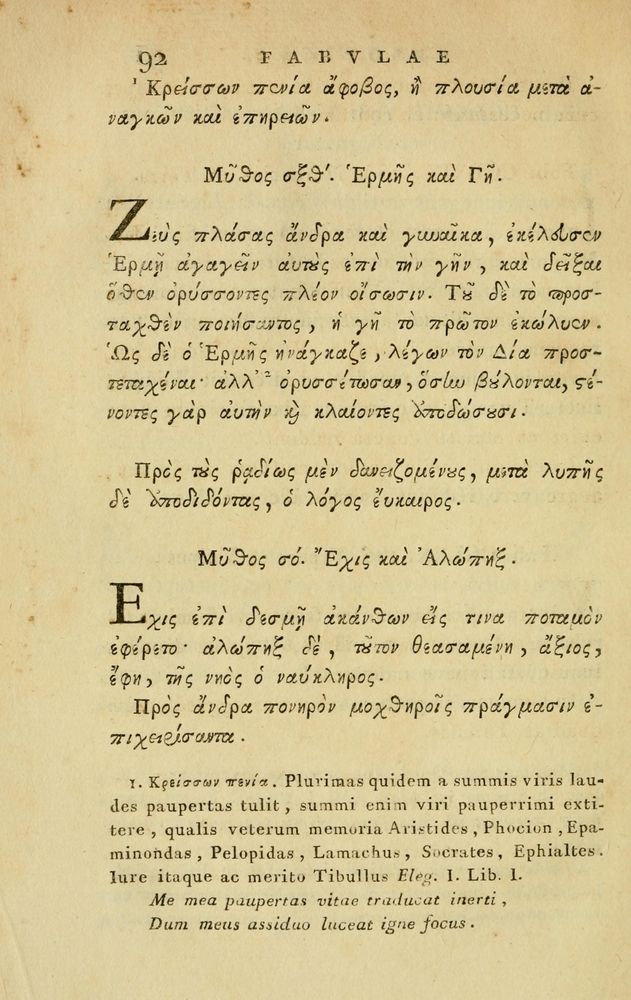 92 FABVLAE
¹ Κρείσσων πενία ἄφοβος, ἢ πλουσία μετὰ ἀ-
ναγκῶν καὶ ἐπηρειῶν.
Μῦθος σξθ'. Ἑρμῆς καὶ Γῆ.
Ζεὺς πλάσας ἄνδρα καὶ γυναῖκα, ἐκέλευσεν
Ἑρμῇ ἀγαγεῖν αὐτοὺς ἐπὶ τὴν γῆν, καὶ δεῖξαι
ὅθεν ὀρύσσοντες πλέον οἴσωσιν. Τοῦ δὲ τὸ προσ-
ταχθὲν ποιήσαντος, ἡ γῆ τὸ πρῶτον ἐκώλυεν.
Ὡς δὲ ὁ Ἑρμῆς ἠνάγκαζε, λέγων τὸν Δία προσ-
τεταχέναι· ἀλλ' ² ὀρυσσέτωσαν, ὅσην βούλονται, στέ-
νοντες γὰρ αὐτὴν καὶ κλαίοντες ἀποδώσουσι.
Πρὸς τοὺς ῥαδίως μὲν δανειζομένους, μετὰ λυπῆς
δὲ ἀποδιδόντας, ὁ λόγος ἔυκαιρος.
Μῦθος σό. Ἔχις καὶ Ἀλώπηξ.
Εχις ἐπὶ δεσμῇ ἀκάνθων εἴς τινα ποταμὸν
ἐφέρετο· ἀλώπηξ δέ, τοῦτον θεασαμένη, ἄξιος,
ἔφη, τῆς νηὸς ὁ ναύκληρος.
Πρὸς ἄνδρα πονηρὸν μοχθηροῖς πράγμασιν ἐ-
πιχειρίσαντα.
1. Κρείσσων πενία. Plurimas quidem a summis viris lau-
des paupertas tulit, summi enim viri pauperrimi exti-
tere, qualis veterum memoria Aristides, Phocion, Epa-
minondas, Pelopidas, Lamachus, Socrates, Ephialtes.
Iure itaque ac merito Tibullus Eleg. I. Lib. I.
Me mea paupertas vitae traducat inerti,
Dum meus assiduo luceat igne focus.